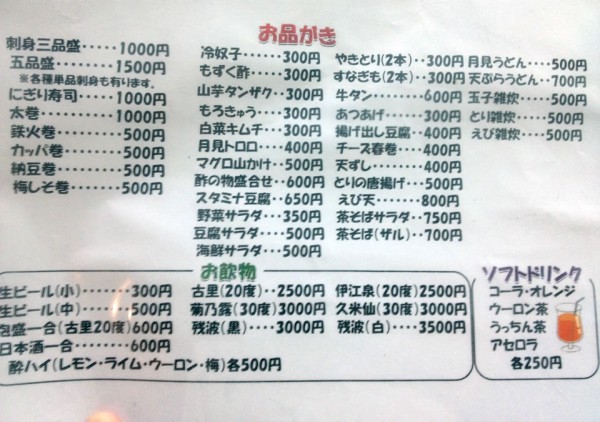 お品がき
刺身三品盛・・・・・1000円
五品盛・・・・・・・1500円
※各種単品刺身も有ります。
にぎり寿司・・・・1000円
太巻・・・・・・・・1000円
鉄火巻・・・・・・・500円
カッパ巻・・・・・・500円
納豆巻・・・・・・・500円
梅しそ巻・・・・・500円
冷奴子・・・・・・300円
もずく酢・・・・・300円
山芋タンザク・・・300円
もろきゅう・・・・300円
白菜キムチ・・・300円
月見トロロ・・・・400円
マグロ山かけ・・500円
酢の物盛合せ・・600円
スタミナ豆腐・・650円
野菜サラダ・・・350円
豆腐サラダ・・・・500円
海鮮サラダ・・・500円
やきとり(2本)・・300円
すなぎも(2本)・・300円
牛タン・・・・・・・600円
あつあげ・・・・・300円
揚げ出し豆腐・・400円
チーズ春巻・・・・400円
天ずし・・・・・・・400円
とりの唐揚げ・・・500円
えび天・・・・・・・800円
茶そばサラダ・・750円
茶そば(ザル)・・700円
月見うどん・・・・500円
天ぷらうどん・・700円
玉子雑炊・・・・500円
とり雑炊・・・・500円
えび雑炊・・・・500円
お飲物
生ビール(小)・・・・・300円
生ビール(中)・・・・・500円
泡盛一合(古里20度)600円
日本酒一合・・・・・・600円
酔ハイ(レモン・ライム・ウーロン・梅)各500円
古里(20度)・・2500円
菊乃露(30度)3000円
残波(黒)・・・・3000円
伊江泉(20度)2500円
久米仙(30度)3000円
残波(白)・・・3500円
ソフトドリンク
コーラ・オレンジ
ウーロン茶
うっちん茶
アセロラ
各250円